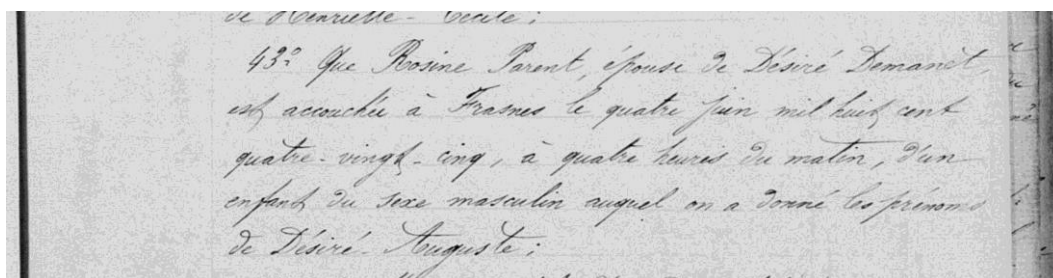 de Henriette-Cécile;
43º Que Rosine Parent, épouse de Désiré Demanet,
est accouchée à Frasnes le quatre juin mil huit cent
quatre-vingt-cinq, à quatre heures du matin, d'un
enfant du sexe masculin auquel on a donné les prénoms
de Désiré-Auguste;